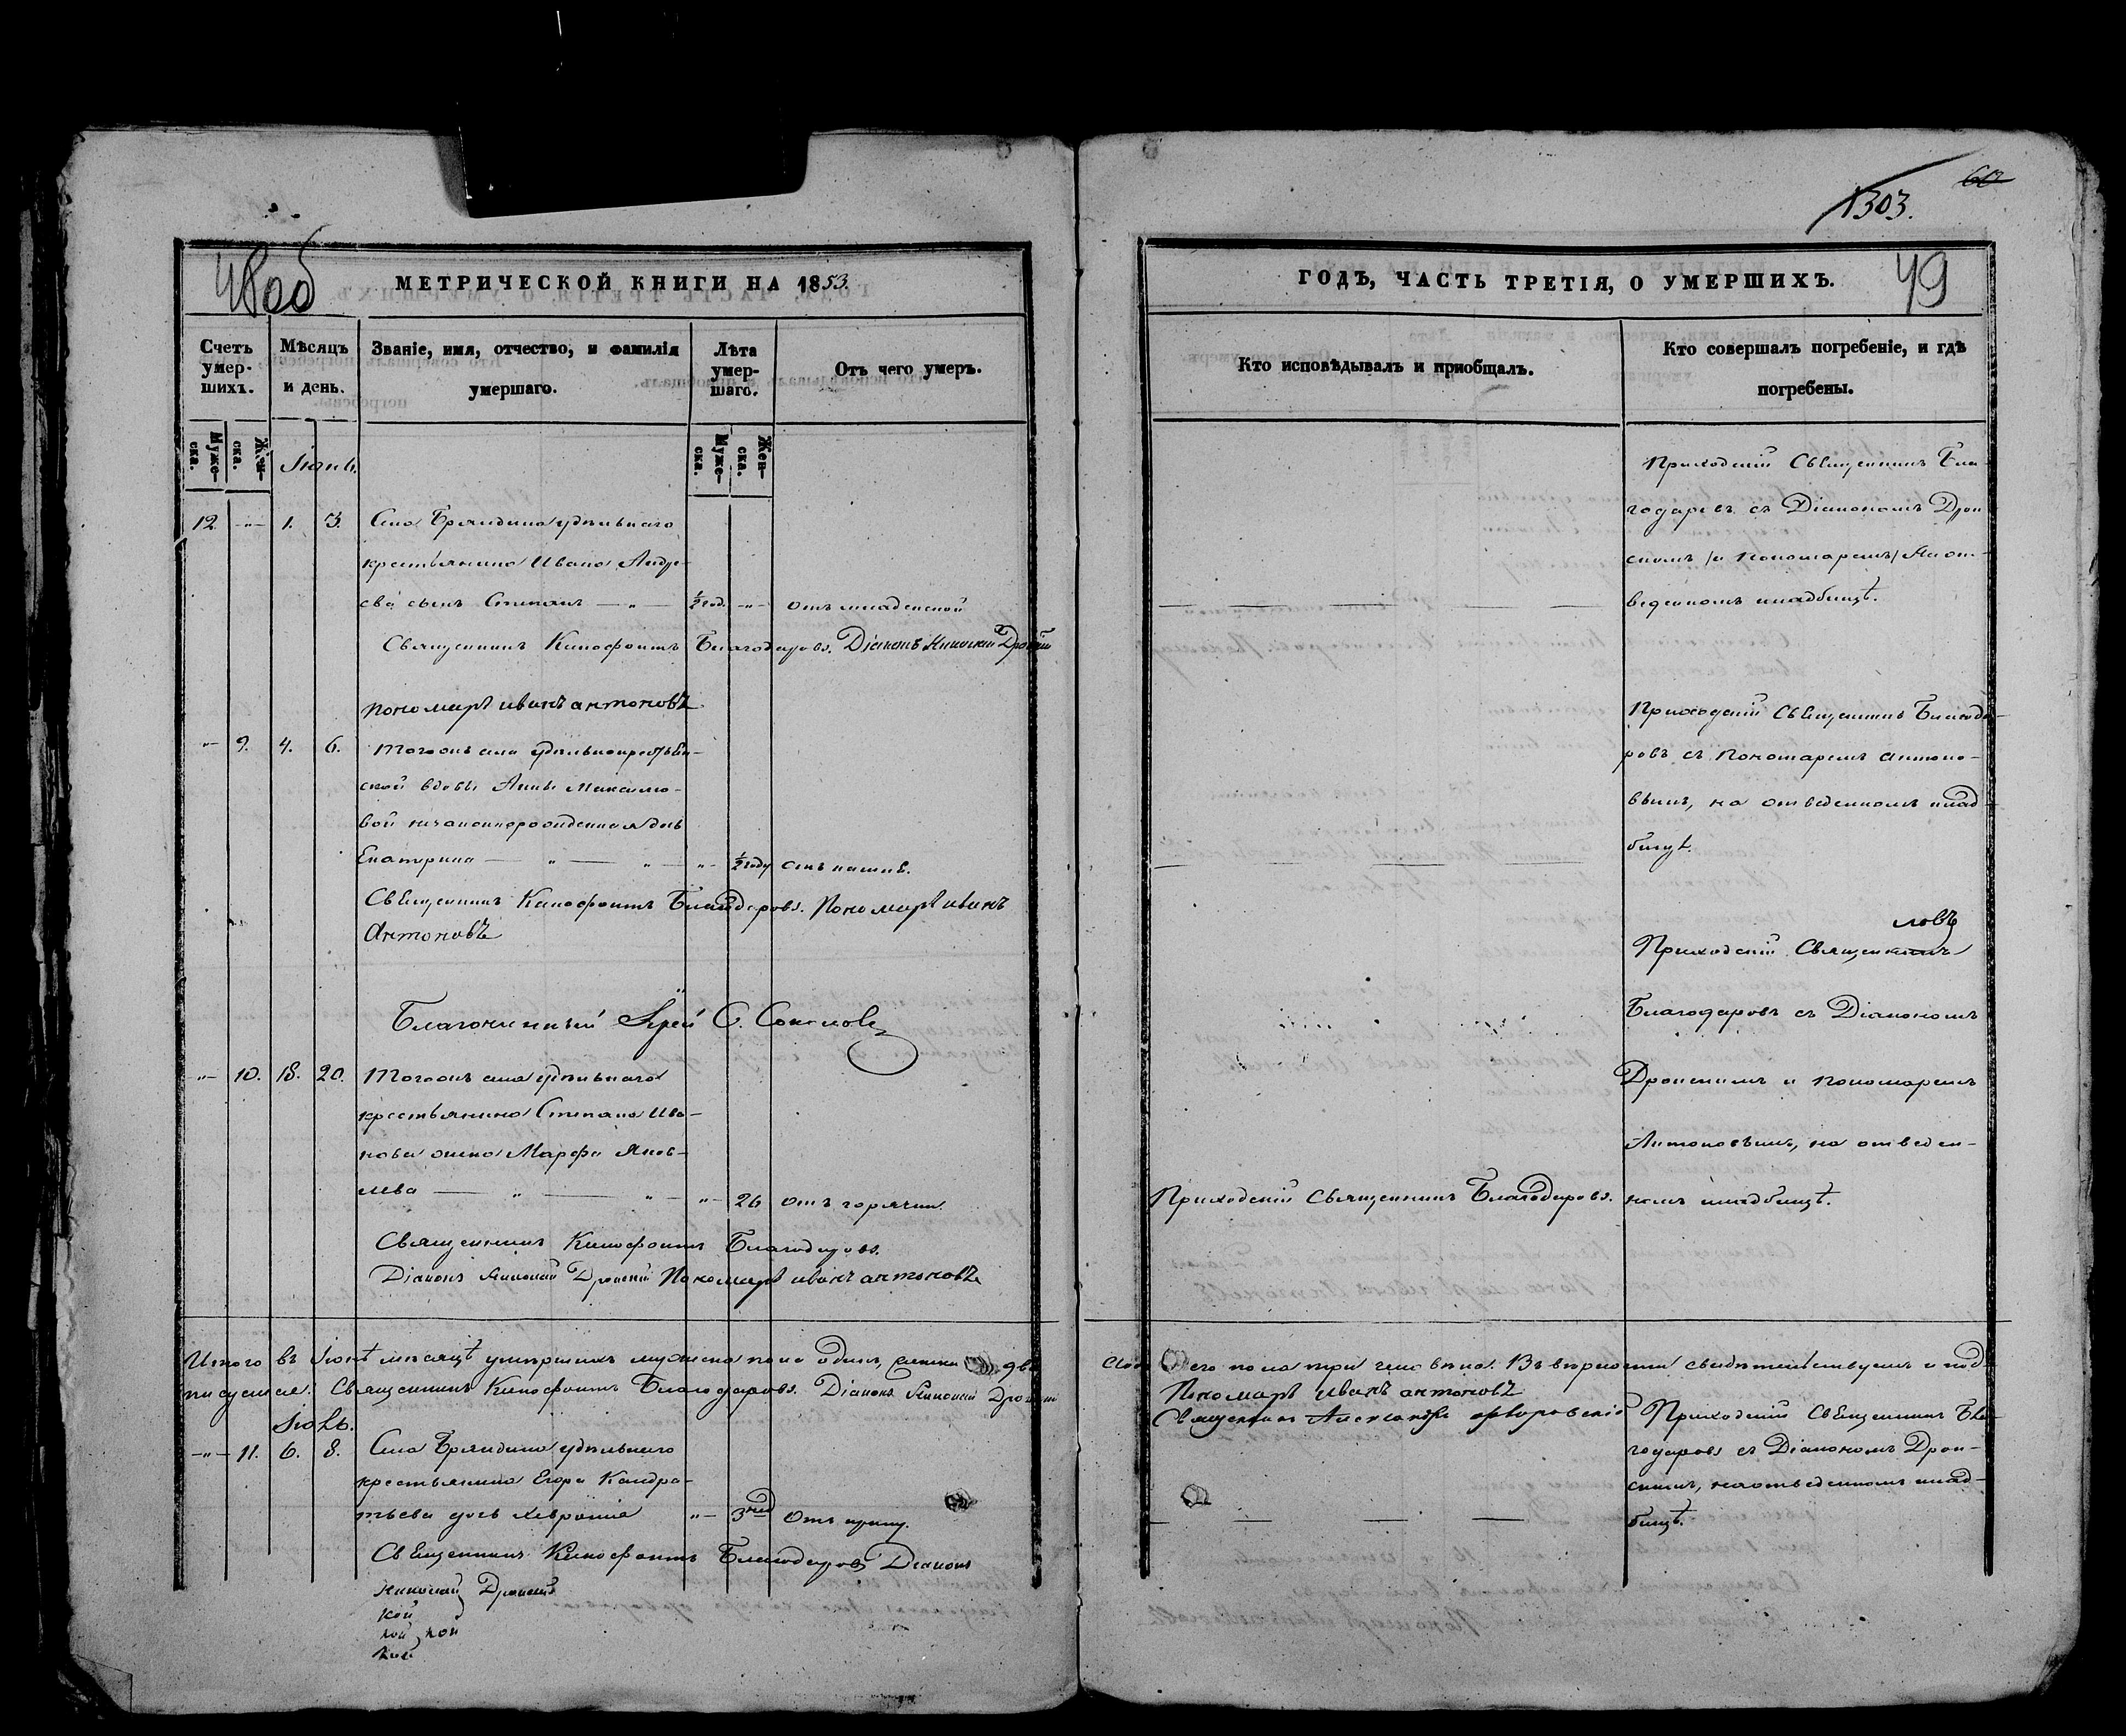 48 об
МЕТРИЧЕСКОЙ КНИГИ НА 1853.
Счетъ умер-шихъ.
Мѣсяцъ и день.
Званіе, имя, отчество, и фамилія умершаго.
Лѣта умер-шаго.
Отъ чего умеръ.
Муже-ска.
Жен-ска.
Муже-ска.
Жен-ска.
Іюнь.
12 -"- 1. 3. Села Бряндина удѣльнаго
крестьянина Ивана Андре-
ева сынъ Степанъ — " — ½ год. -"- отъ младенской
Священникъ Ксенофонтъ Благодаровъ. Діаконъ Николай Дронскій
пономарь иванъ антоновъ
-"- 9. 4. 6. Тогожъ села удѣльнокрестьян-
ской вдовы Анны Максимо-
вой незаконнорожденная дочь
Екатерина — " — " — " - ½ году отъ кашля.
Священникъ Ксенофонтъ Благодаровъ. Пономарь иванъ
Антоновъ
Благочинный Іерей С. Соколовъ
-"- 10. 18. 20. Тогожъ села удѣльнаго
крестьянина Степана Ива-
нова жена Марфа Яков-
лева — " — " — -"- 26 отъ горячки
Священникъ Ксенофонтъ Благодаровъ.
Діаконъ Николай Дронскій Пономарь иванъ антоновъ
Итого въ Іюнѣ мѣсяцѣ умершихъ мужеска пола одинъ, женска двѣ
писуемся: Священникъ Ксенофонтъ Благодаровъ. Діаконъ Николай Дронскій
Іюль.
-"- 11. 6. 8. Села Бряндина удѣльнаго
крестьянина Егора Кандра-
тьева дочь Хевронія "- 3 нед отъ
Священникъ Ксенофонтъ Благодаровъ Діаконъ
Николай Дронскій
кой
кой кой
кой
60
1303.
ГОДЪ, ЧАСТЬ ТРЕТІЯ, О УМЕРШИХЪ.
49
Кто исповѣдывалъ и пріобщалъ.
Кто совершалъ погребеніе, и гдѣ погребены.
Приходскій Священникъ Бла-
годаровъ съ Діакономъ Дрон
скимъ и пономаремъ на от-
веденномъ кладбищѣ.
Приходскій Священникъ Благода-
ровъ съ Пономаремъ Антоно-
вымъ, на отведенномъ клад-
бищѣ.
Приходскій Священникъ
Благодаровъ съ Діакономъ
Дронскимъ и пономаремъ
Антоновымъ, на отведен-
Приходскій Священникъ Благодаровъ. номъ кладбищѣ.
его пола три человѣка. Въ вѣрности свидѣтельствуемъ и под-
Пономарь иванъ антоновъ
Священникъ Александръ
Приходскій Священникъ Бла-
годаровъ съ Діакономъ Дрон-
скимъ, на отведенномъ клад-
бищѣ.